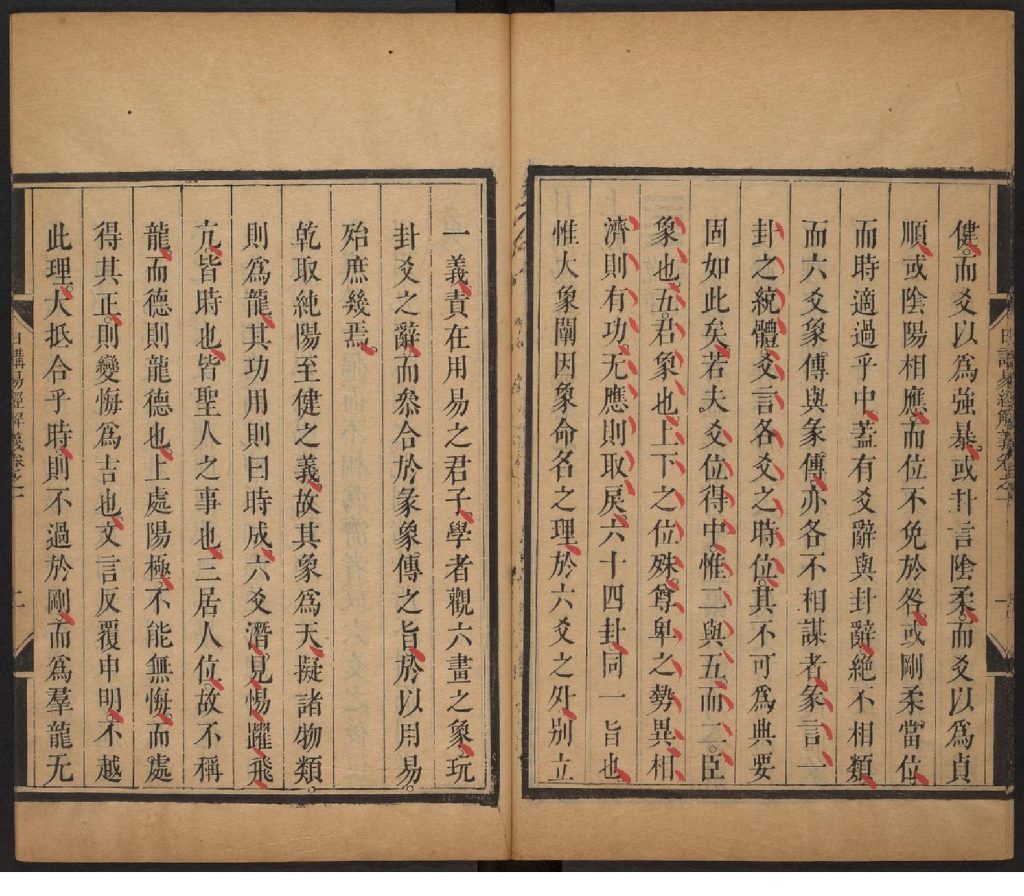 健而爻以為強暴或卦言陰柔而爻以為貞
順或陰陽相應而位不免於咎或剛柔當位
而時適過乎中蓋有爻辭與卦辭絕不相類
而六爻象傳與彖傳亦各不相謀者彖言一
卦之統體爻言各爻之時位其不可為典要
固如此矣若夫爻位得中惟二與五而二臣
象也五君象也上下之位殊尊卑之勢異相
濟則有功无應則取戾六十四卦同一旨也
惟大象闡因象命名之理於六爻之外別立
一義責在用易之君子學者觀六畫之象玩
卦爻之辭而叅合於彖象傳之旨於以用易
殆庶幾焉
乾取純陽至健之義故其象為天擬諸物類
則為龍其功用則曰時成六爻潛見惕躍飛
亢皆時也皆聖人之事也三居人位故不稱
龍而德則龍德也上處陽極不能無悔而處
得其正則變悔為吉也文言反覆申明不越
此理大抵合乎時則不過於剛而為羣龍无
日講易經解義卷之一
一
日講易經解義卷之一
二